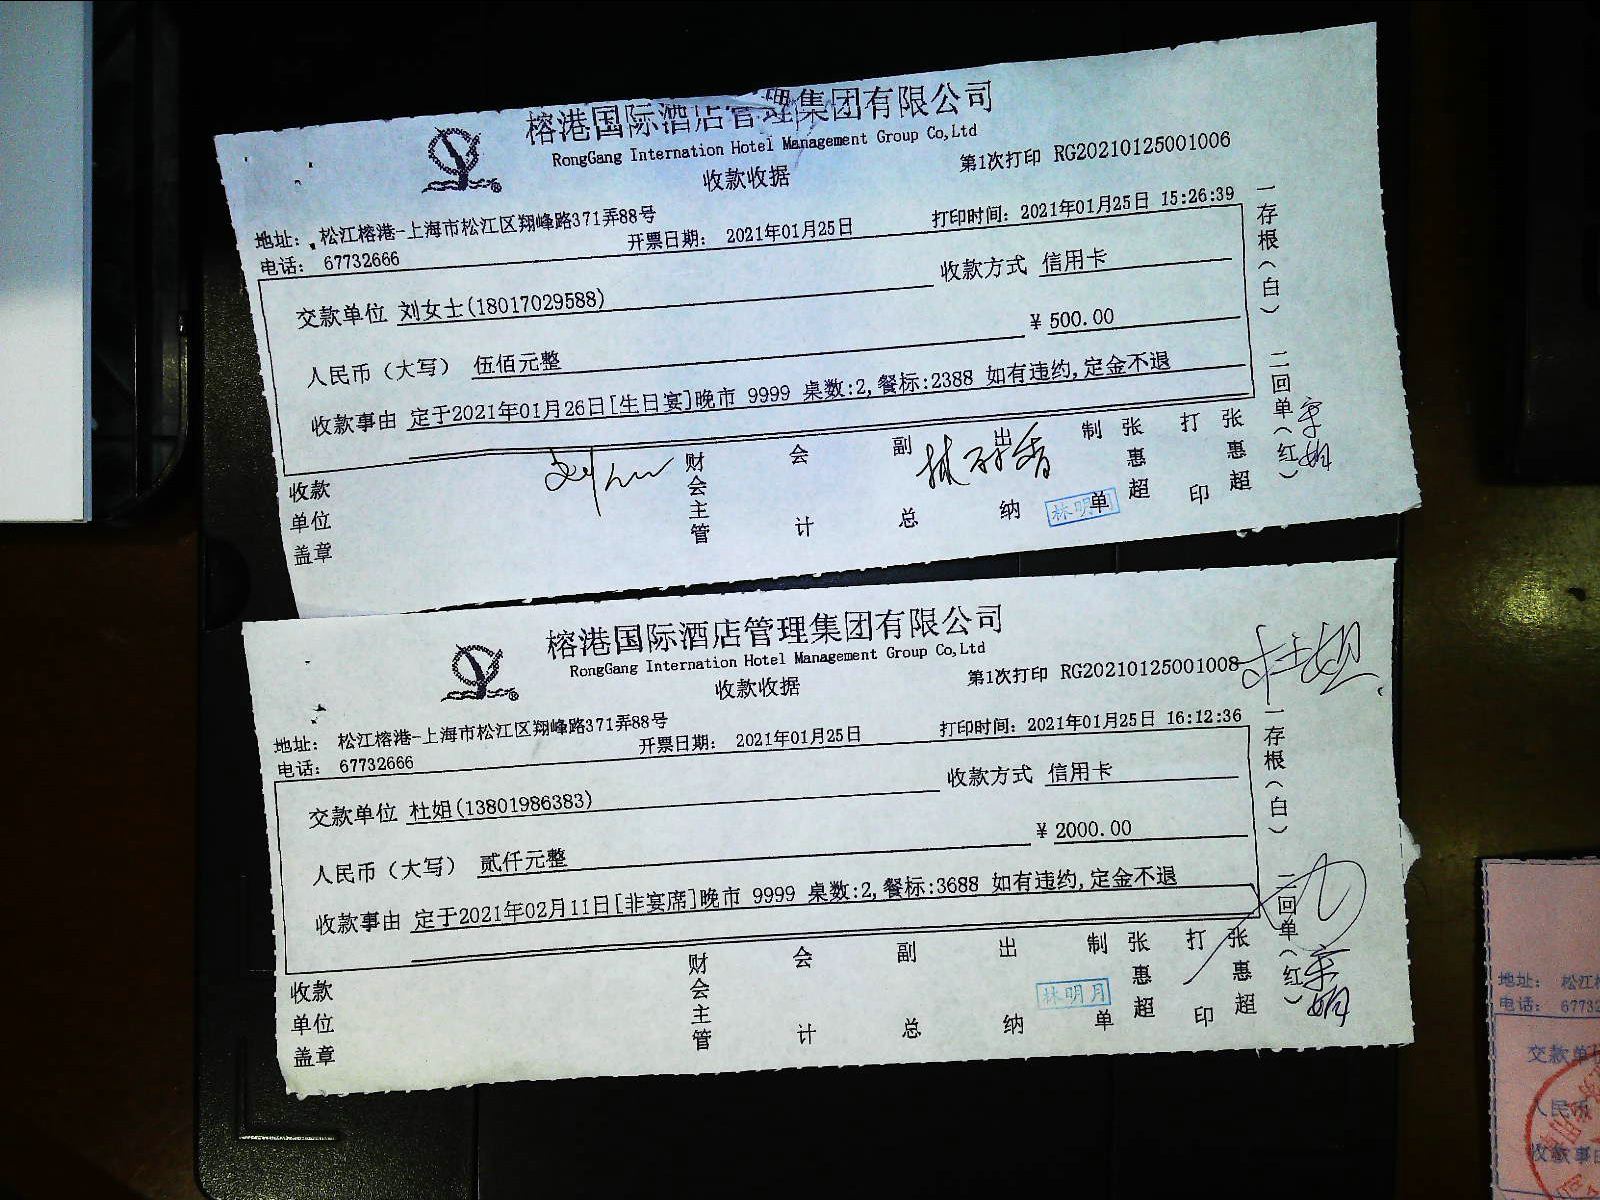 榕港国际酒店管理集团有限公司
RongGang Internation Hotel Management Group Co,Ltd
收款收据
第1次打印 RG20210125001006
地址: 松江榕港-上海市松江区翔峰路371弄88号
电话: 67732666
开票日期: 2021年01月25日
打印时间: 2021年01月25日 15:26:39
交款单位 刘女士(18017029588)
收款方式 信用卡
人民币(大写) 伍佰元整
¥ 500.00
收款事由 定于2021年01月26日[生日宴]晚市 9999 桌数:2,餐标:2388 如有违约,定金不退
收款单位盖章
财会主管
会计
副总
出纳
制单 张惠超
打印 张惠超
林明
一存根(白) 二回单(红)
榕港国际酒店管理集团有限公司
RongGang Internation Hotel Management Group Co,Ltd
收款收据
第1次打印 RG20210125001008
杜姐
地址: 松江榕港-上海市松江区翔峰路371弄88号
电话: 67732666
开票日期: 2021年01月25日
打印时间: 2021年01月25日 16:12:36
交款单位 杜姐(13801986383)
收款方式 信用卡
人民币(大写) 贰仟元整
¥ 2000.00
收款事由 定于2021年02月11日[非宴席]晚市 9999 桌数:2,餐标:3688 如有违约,定金不退
收款单位盖章
财会主管
会计
副总
出纳
制单 张惠超
打印 张惠超
林明月
一存根(白) 二回单(红)
九
地址: 松江
电话: 6773
交款单
人民币
收款事